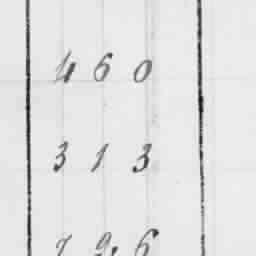 4 6 0
3 1 3
7 9. 6